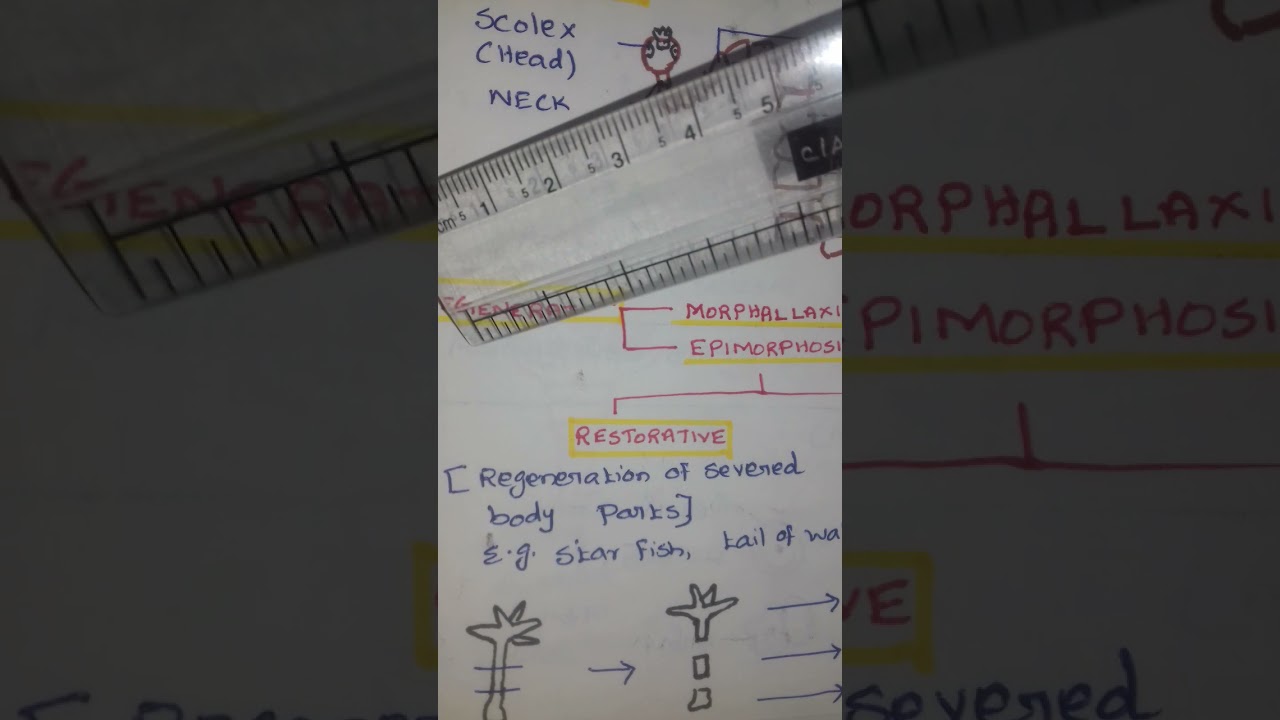 Scolex
(Head)
NECK
cm 5 1 5 2 5 3 5 4 5 5
MORPHALLAXI
EPIMORPHOSI
RESTORATIVE
[Regeneration of severed
body parts]
E.g. Star fish, tail of wa